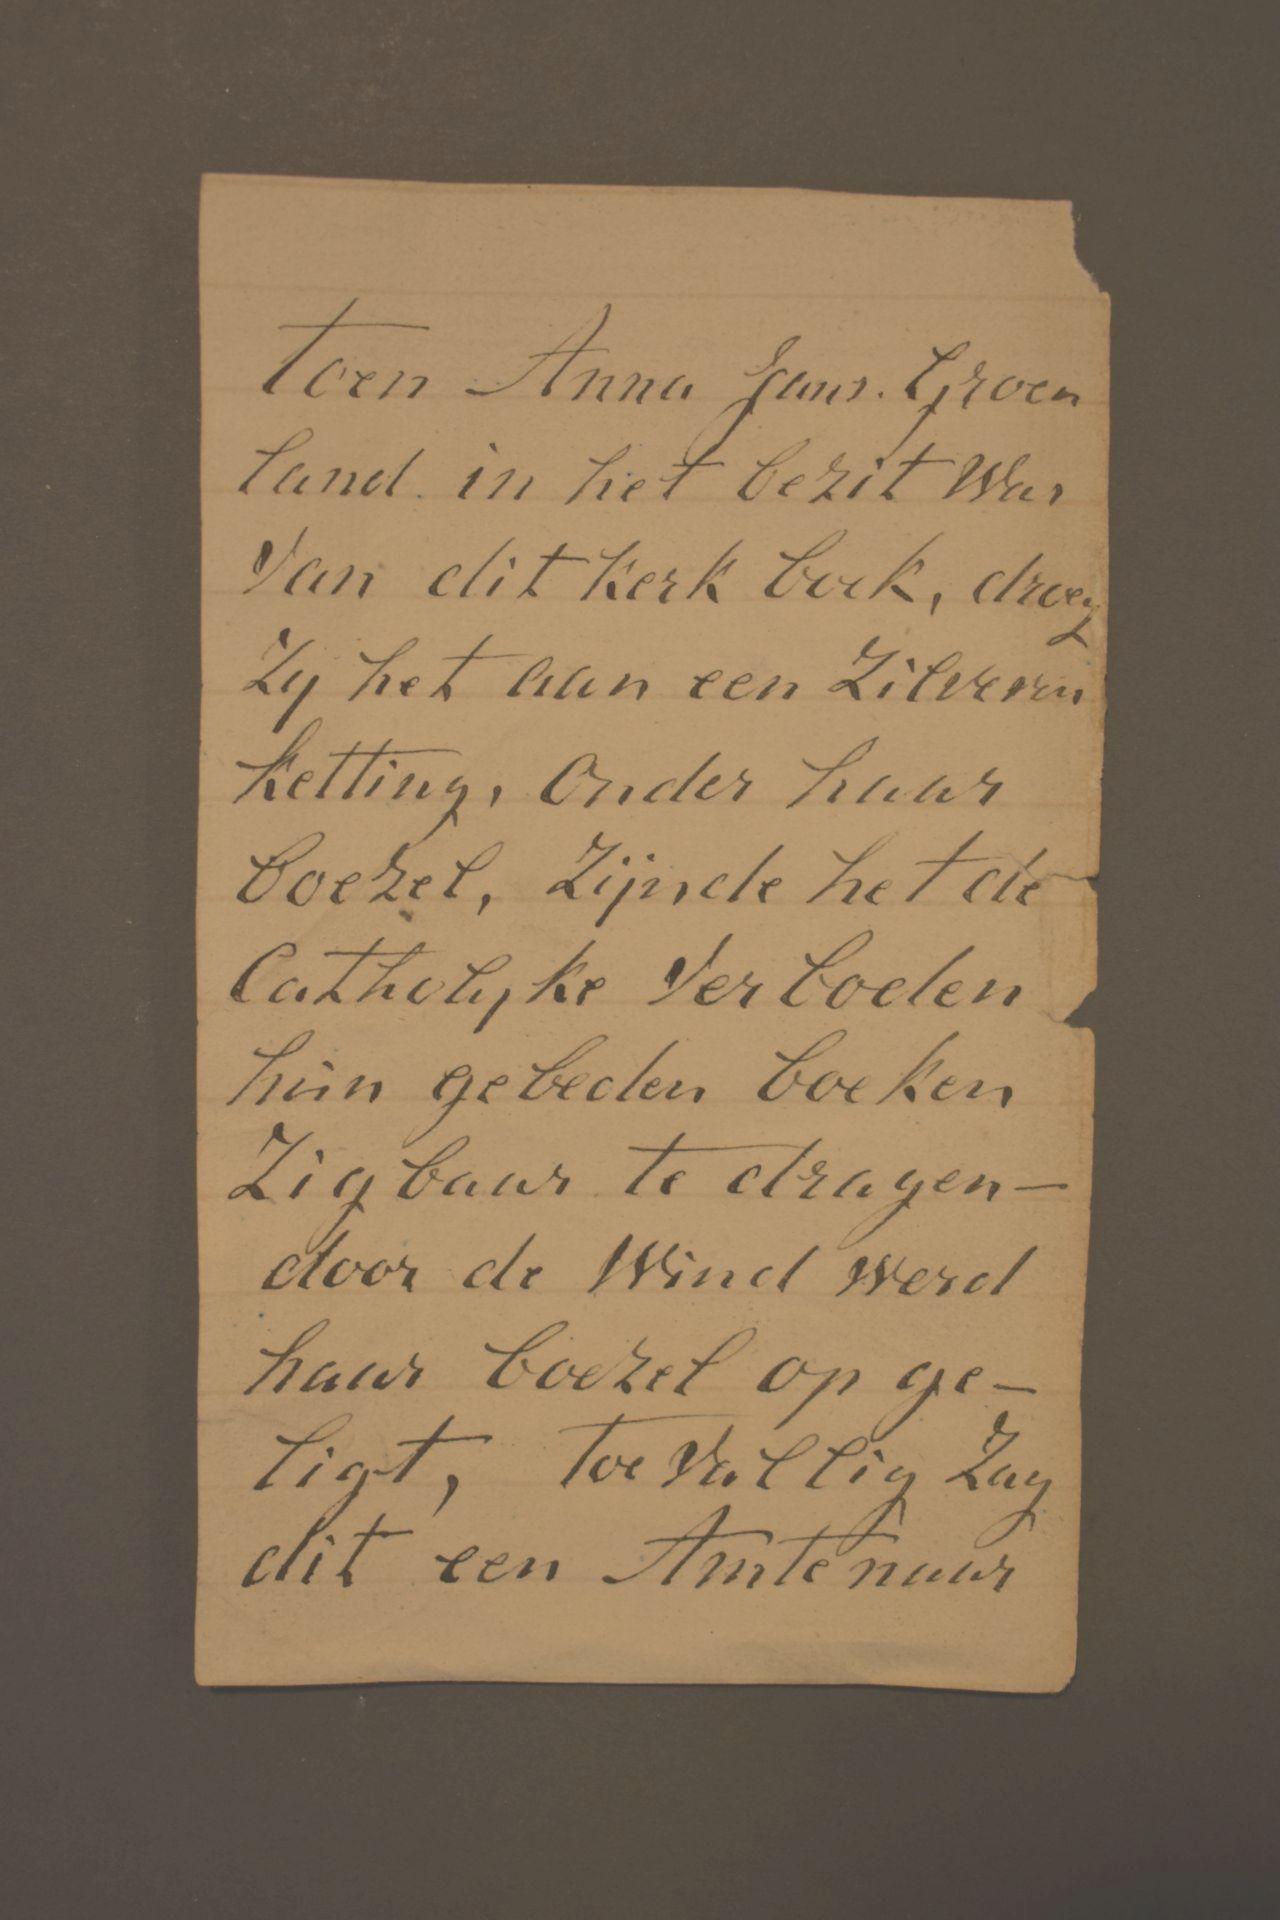 toen Anna Jans. Groen
land. in het bezit Was
Van dit kerk boek, droeg
Zy het aan een Zilveren
ketting, Onder haar
boezel, Zijnde het de
Catholyke Verboden
hun gebeden boeken
Zigbaar te dragen—
door de Wind werd
haar boezel op ge—
ligt, toe Vallig Zag
dit een Amtenaar